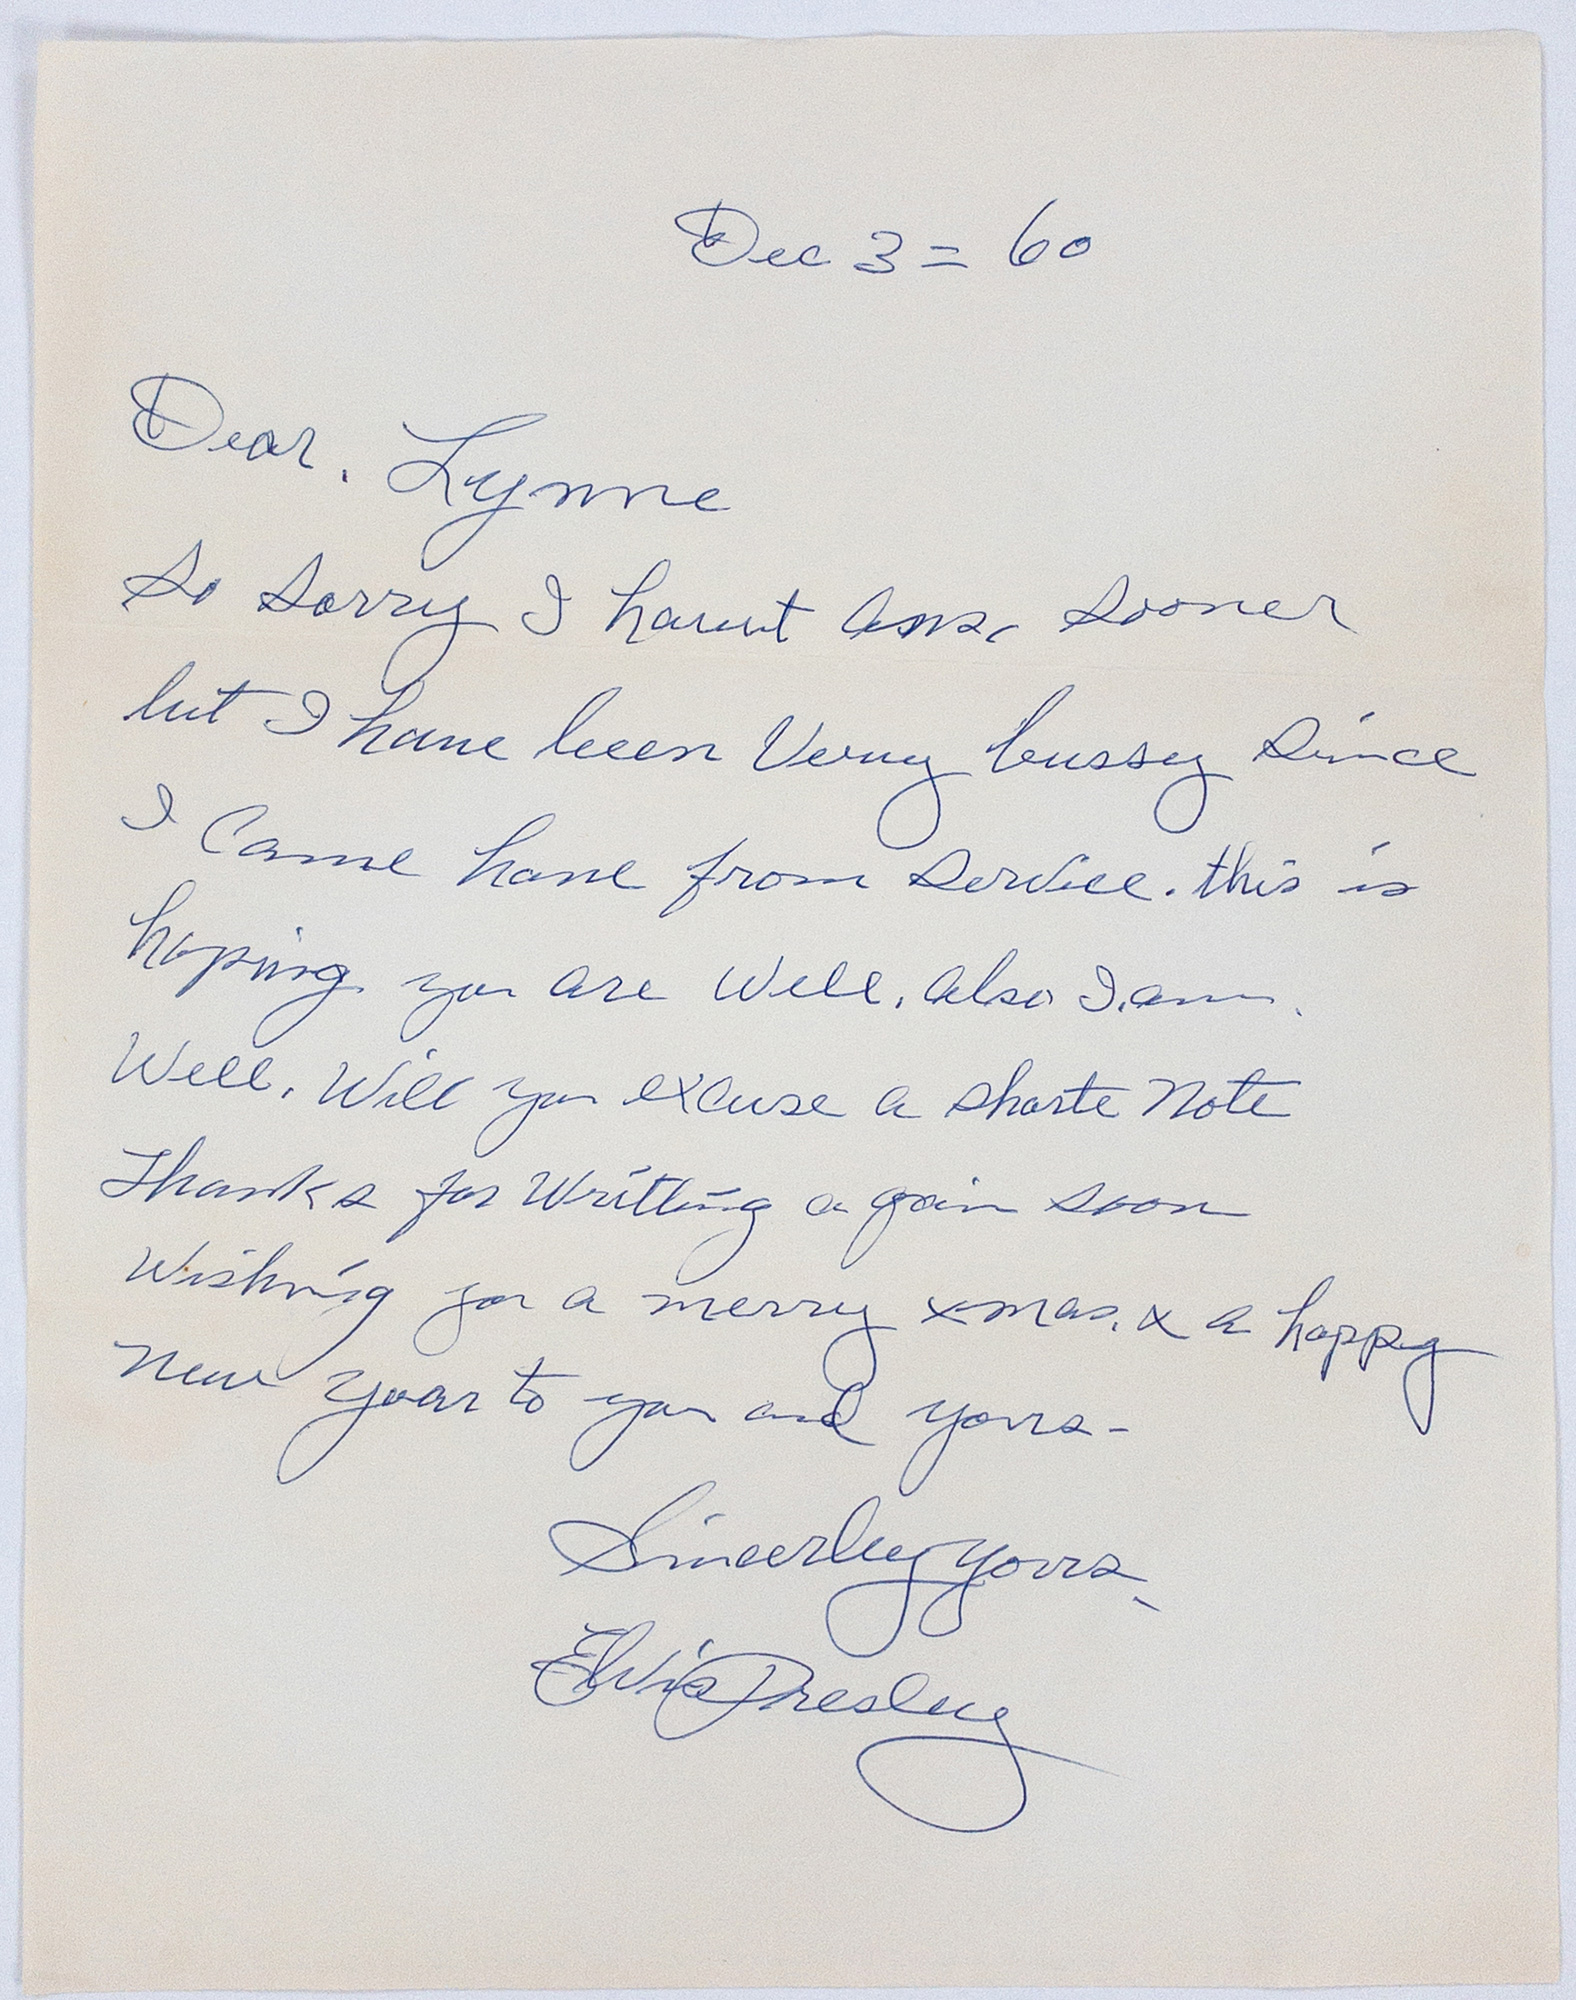 Dec 3 = 60
Dear. Lynne
So Sorry I havent ans. sooner
but I have been Very bussy Since
I Came home from Service. this is
hoping you are Well. also I. am.
Well. Will you excuse a shorte Note
Thanks for Writting again soon
Wishing you a merry xmas. & a happy
New year to you and yours-
Sincerley yours,
Elvis Presley